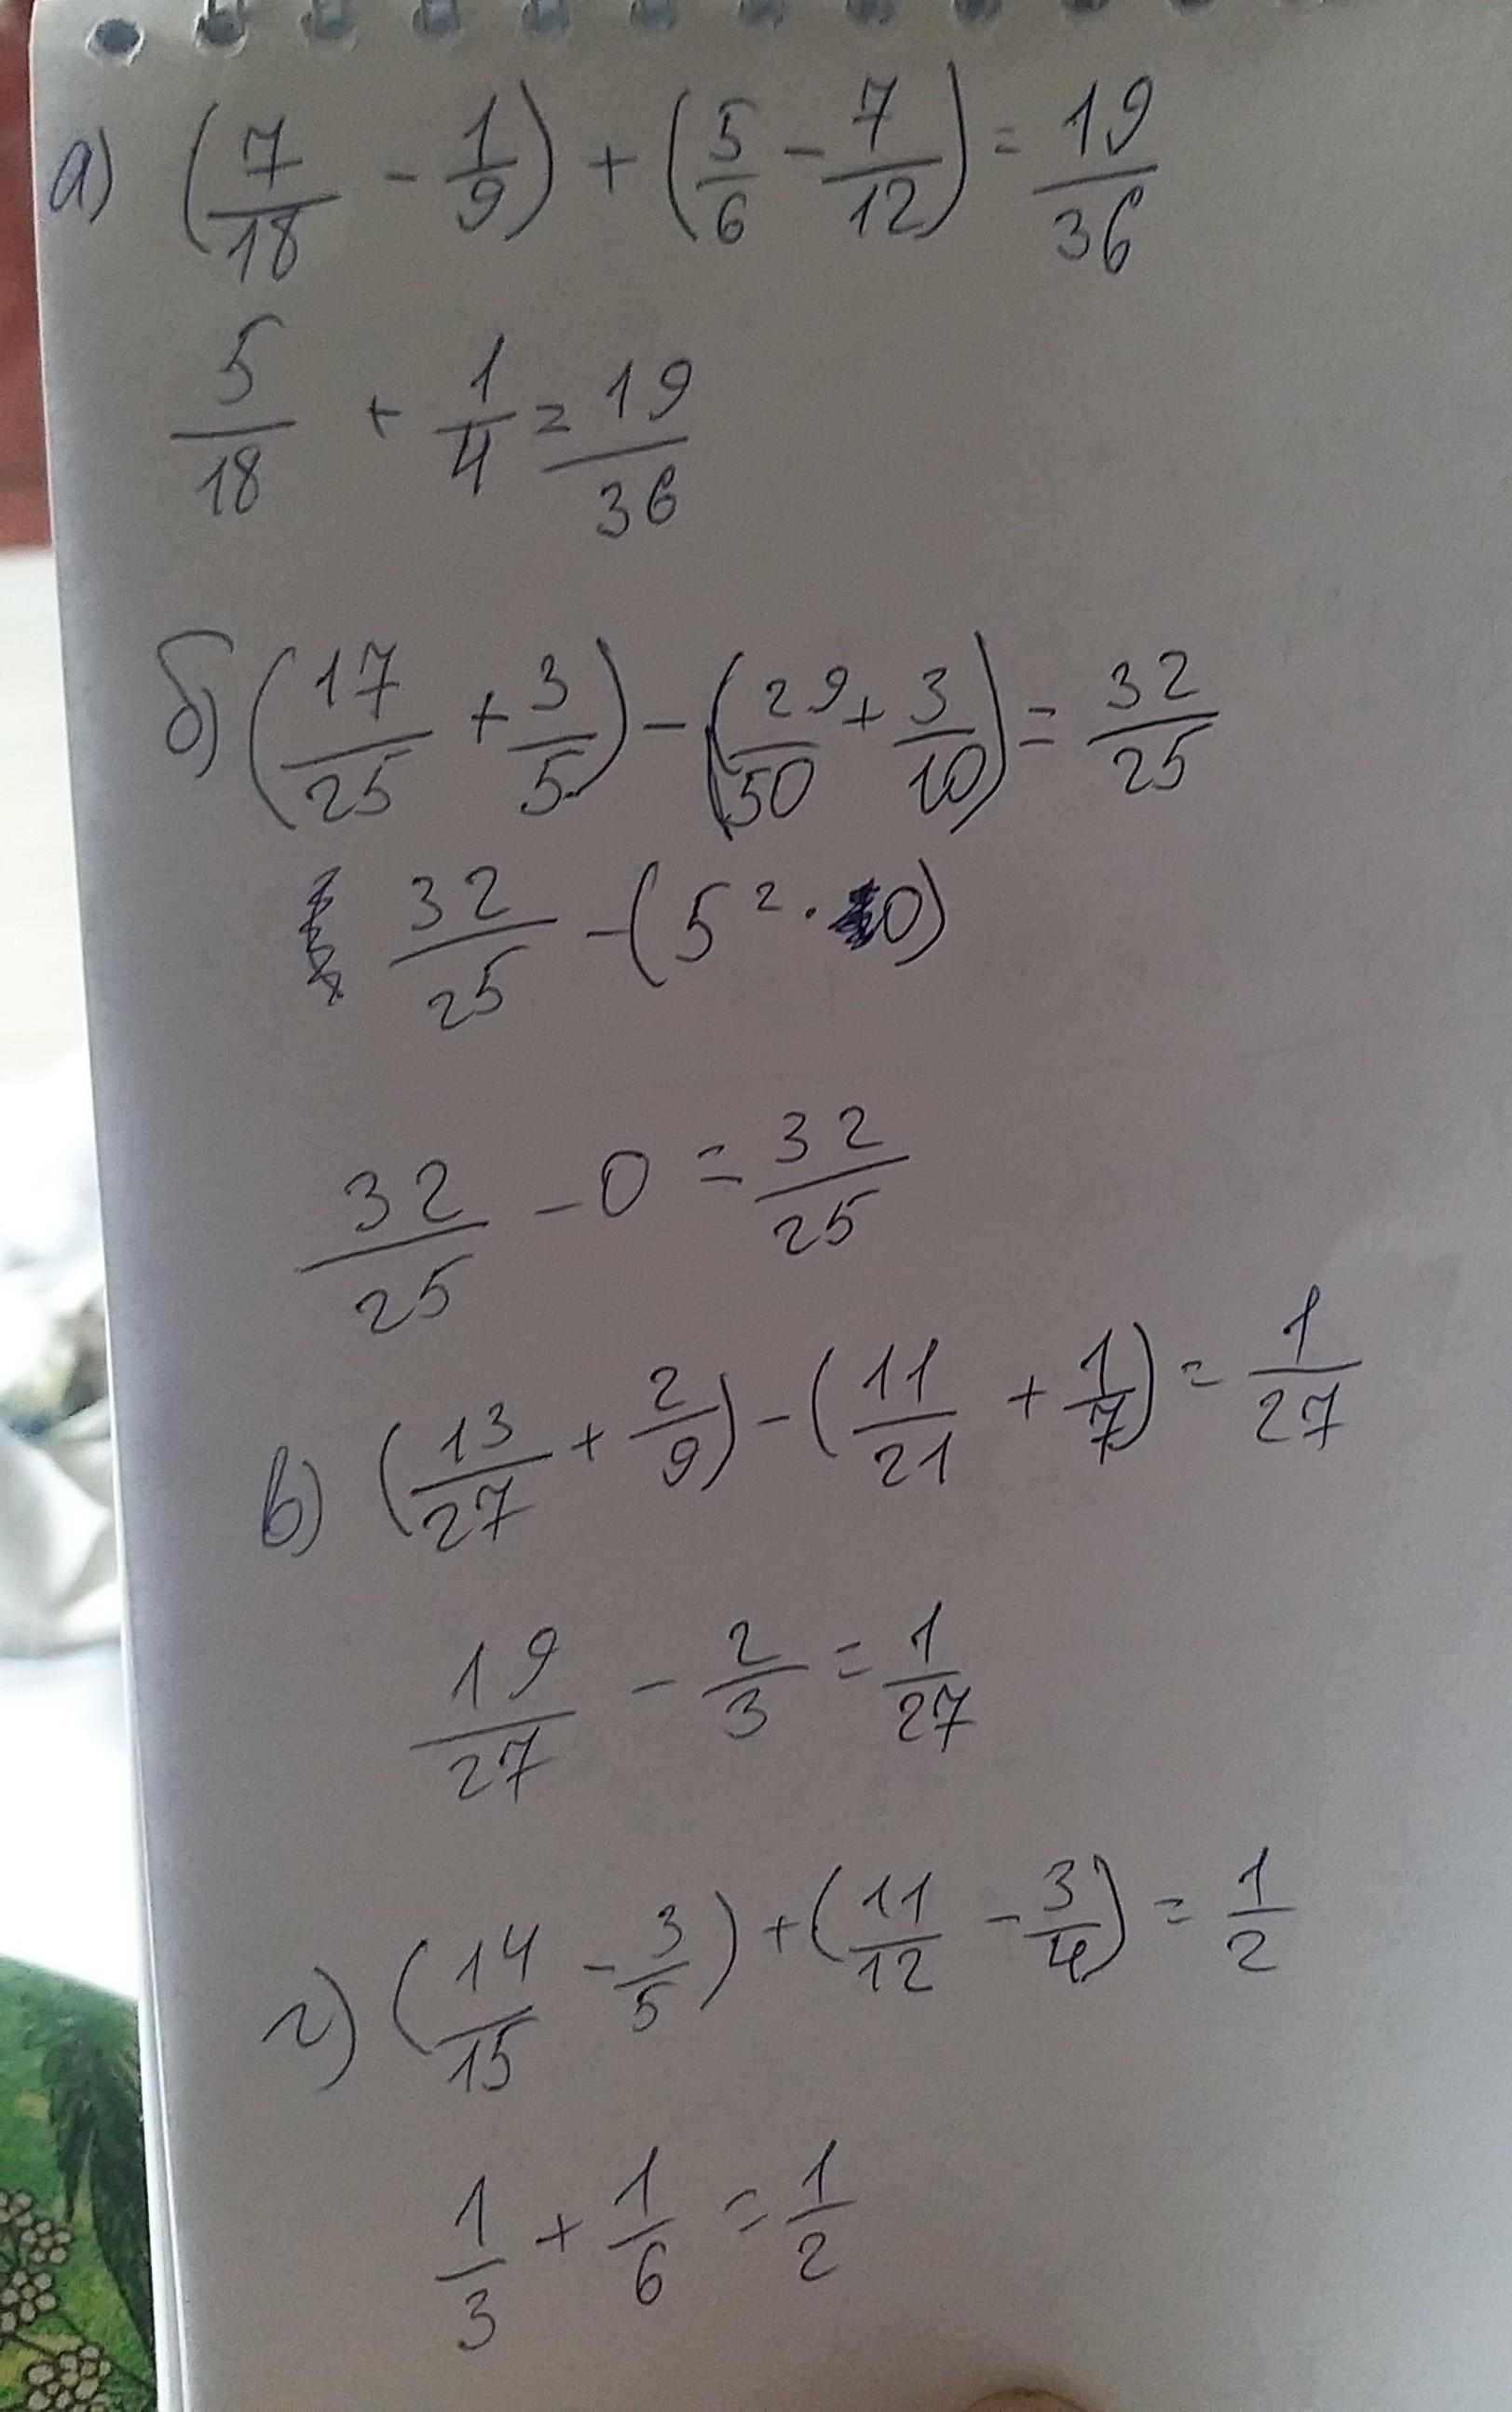 а) (7/18 - 1/9) + (5/6 - 7/12) = 19/36
5/18 + 1/4 = 19/36
б) (17/25 + 3/5) - (29/50 + 3/10) = 32/25
32/25 - (5² · 0)
32/25 - 0 = 32/25
в) (13/27 + 2/9) - (11/21 + 1/7) = 1/27
19/27 - 2/3 = 1/27
г) (14/15 - 3/5) + (11/12 - 3/4) = 1/2
1/3 + 1/6 = 1/2